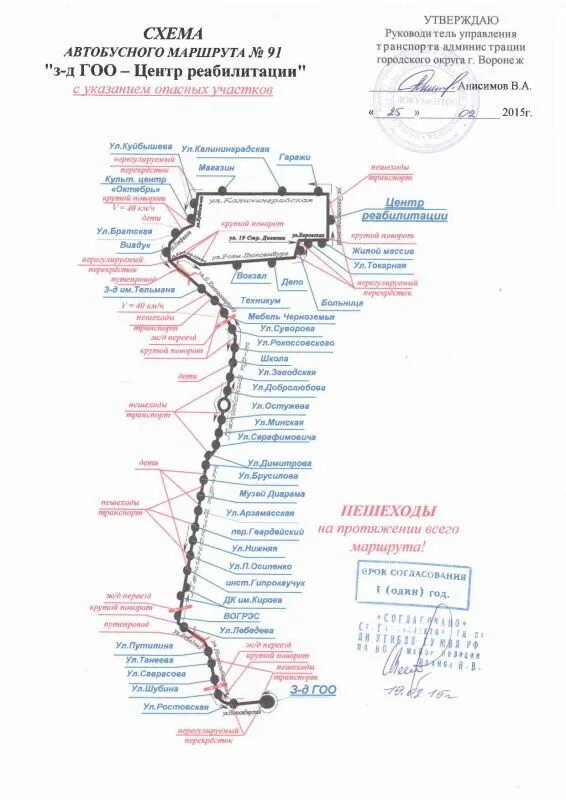 УТВЕРЖДАЮ
Руководитель управления
транспорта администрации
городского округа г. Воронеж
Анисимов В.А.
« 25 » 02 2015г.
СХЕМА
АВТОБУСНОГО МАРШРУТА № 91
"з-д ГОО – Центр реабилитации"
с указанием опасных участков
Ул.Куйбышева
Ул.Калининградская
Гаражи
нерегулируемый
перекрёсток
Магазин
пешеходы
транспорт
Культ. центр
«Октябрь»
крутой поворот
V = 40 км/ч
дети
ул.Калининградская
Центр
реабилитации
крутой поворот
Ул.Братская
Виадук
ул. 19 Стр. Дивизии
ул.Боровская
крутой поворот
Жилой массив
нерегулируемый
перекрёсток
путепровод
ул.Розы Люксембург
Ул.Токарная
Вокзал
Депо
нерегулируемый
перекрёсток
З-д им.Тельмана
Техникум
Больница
V = 40 км/ч
пешеходы
транспорт
Мебель Черноземья
Ул.Суворова
ж/д переезд
крутой поворот
Ул.Рокоссовского
Школа
Ул.Заводская
дети
Ул.Добролюбова
пешеходы
транспорт
Ул.Остужева
Ул.Минская
Ул.Серафимовича
дети
Ул.Димитрова
Ул.Брусилова
Музей Диарама
пешеходы
транспорт
Ул.Арзамасская
ПЕШЕХОДЫ
на протяжении всего
маршрута!
пер.Гвардейский
Ул.Нижняя
Ул.П.Осипенко
инст.Гипрокаучук
СРОК СОГЛАСОВАНИЯ
1 (один) год.
ж/д переезд
крутой поворот
ДК им.Кирова
путепровод
ВОГРЭС
Ул.Лебедева
«СОГЛАСОВАНО»
Ул.Путилина
ж/д переезд
крутой поворот
Ул.Танеева
пешеходы
транспорт
Ул.Саврасова
Ул.Шубина
З-д ГОО
19.02.15г
Ул.Ростовская
ул.Новосибирская
нерегулируемый
перекрёсток